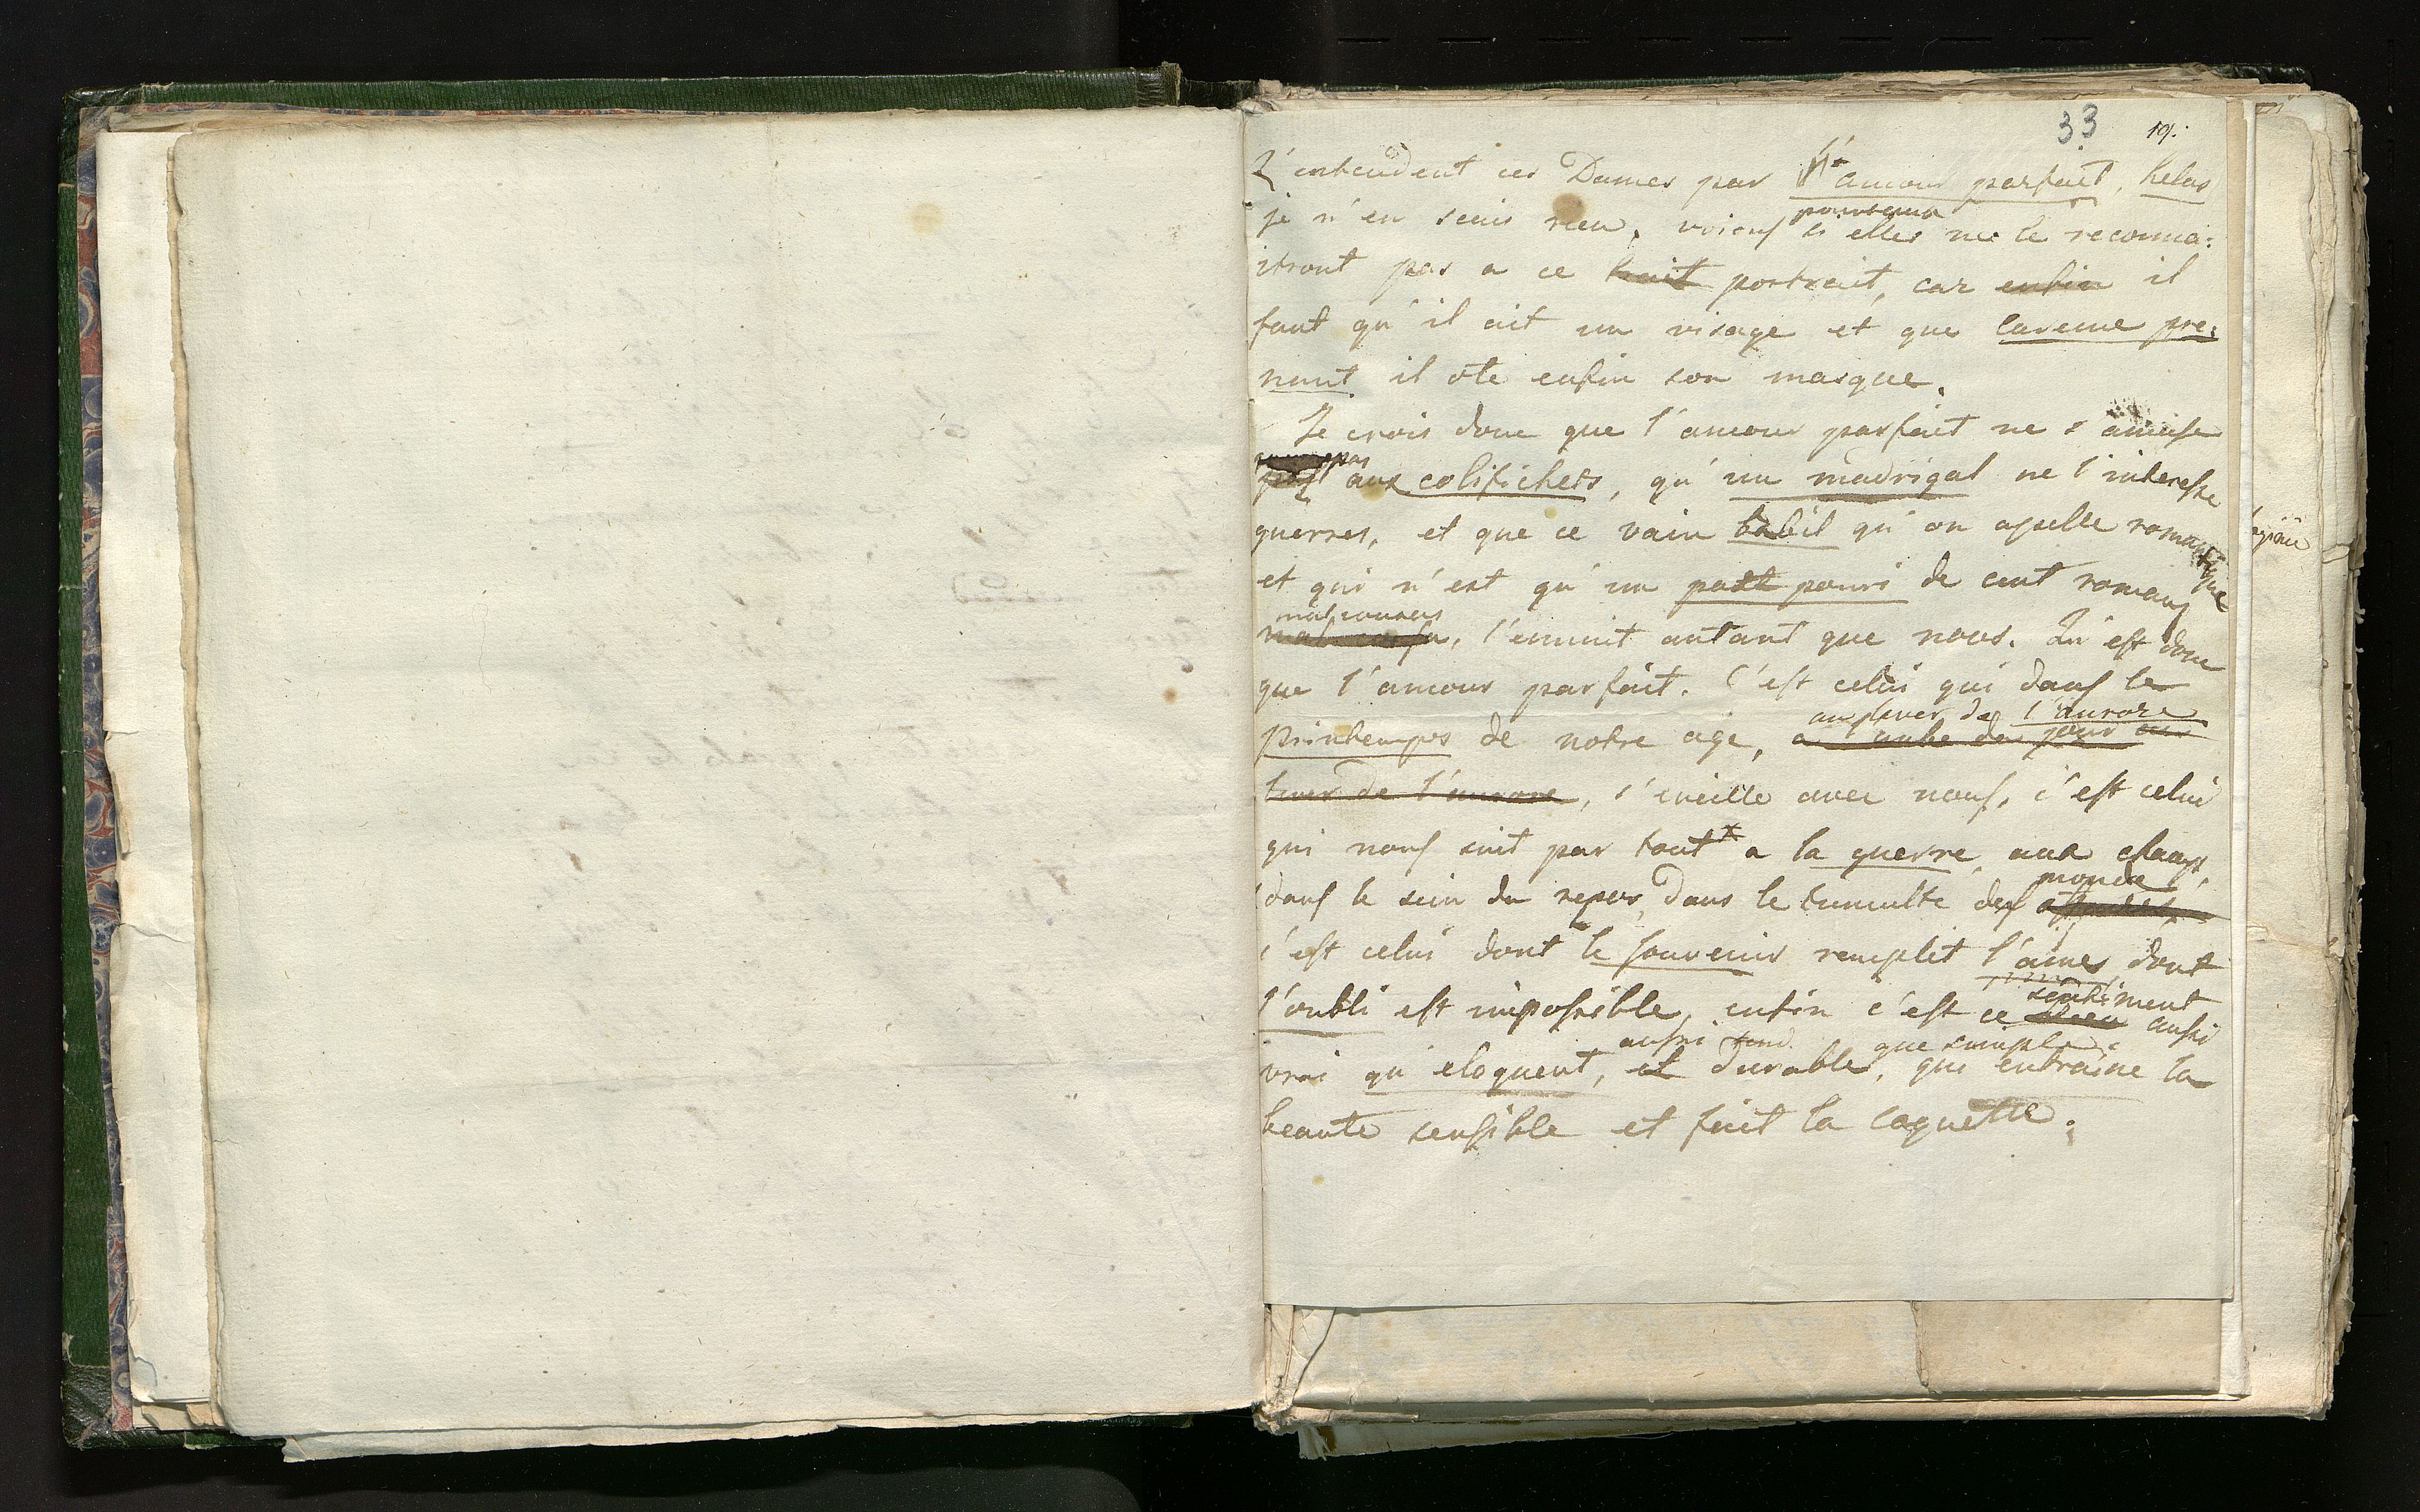 33 19.
Q'entendent ces Dames par l'amour parfait, helas
je n'en scais rien, voions pourtant si elles ne le reconna:
itront pas a ce trait portrait, car enfin il
faut qu'il ait un visage et que careme pre:
nant il ote enfin son masque.
Je crois donc que l'amour parfait ne s'amuse
pas
aux colifichets, qu'un madrigal ne l'interesse
guerres, et que ce vain babil qu'on apelle romantique
et qui n'est qu'un pot pouri de cent romans
mal cousus
mal cousu, l'ennuit autant que nous. Qu'est donc
que l'amour parfait. C'est celui qui dans le
au lever de l'aurore
printemps de notre age, a l'aube du jour au
lever de l'aurore, s'eveille avec nous, c'est celui
qui nous suit par tout a la guerre, aux champs,
monde
dans le sein du repos, dans le tumulte des affaires,
c'est celui dont le souvenir remplit l'ame, dont
sentiment
l'oubli est impossible, enfin c'est ce aussi
aussi que simple
vrai qu'eloquent, et durable, qui entraine la
beauté sensible et fuit la coquette.